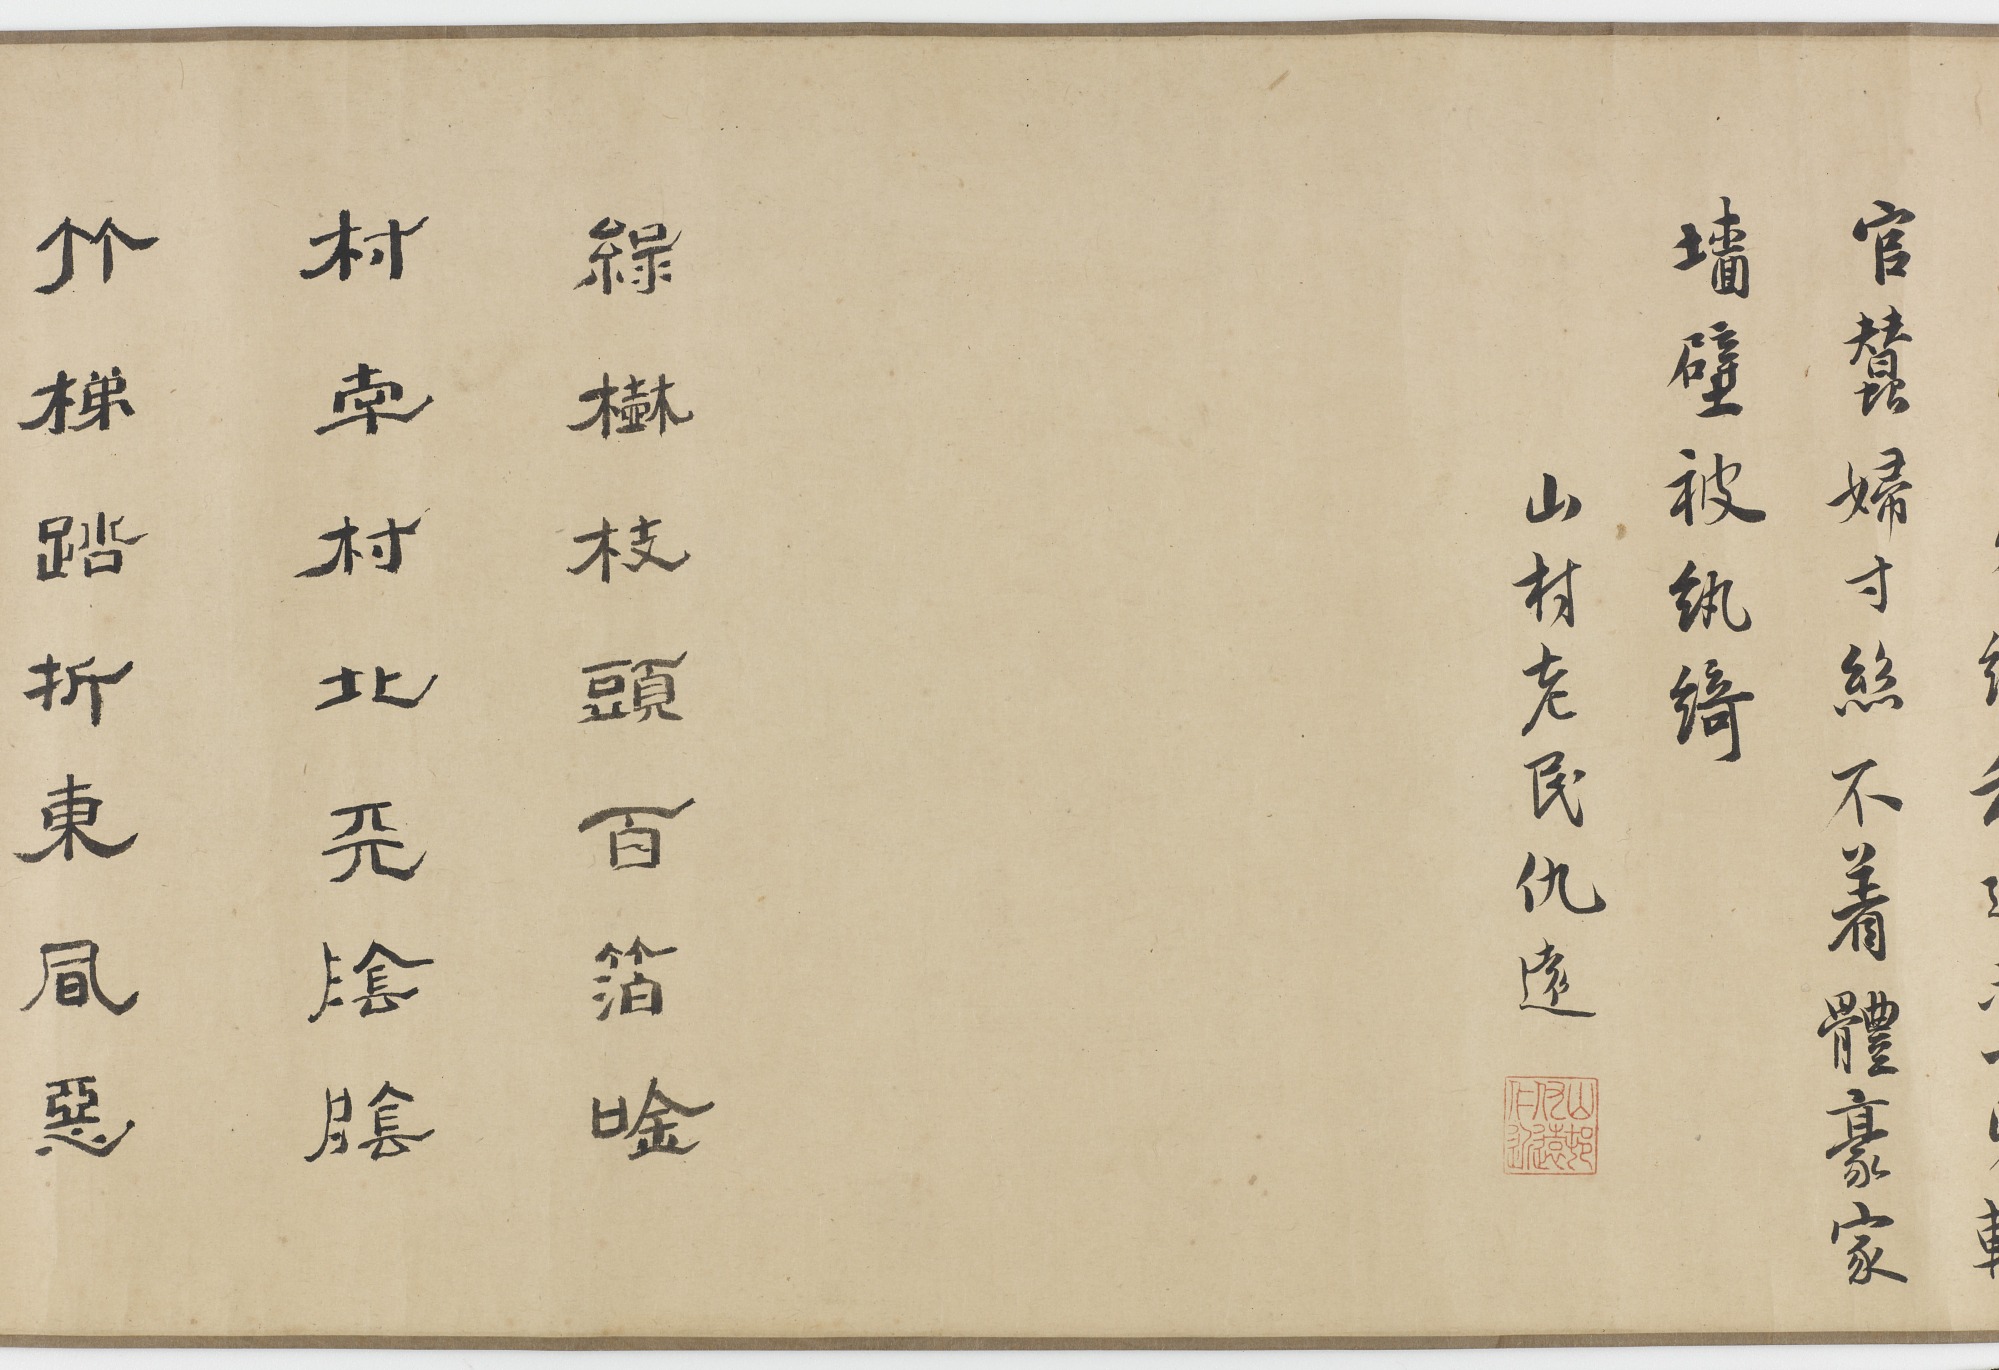 官蠶婦寸絲不着體豪家
墻壁被紈綺
山村老民仇遠
山邨仇遠仁近
綠樹枝頭百箔
村南村北
竹梯踏折東風惡